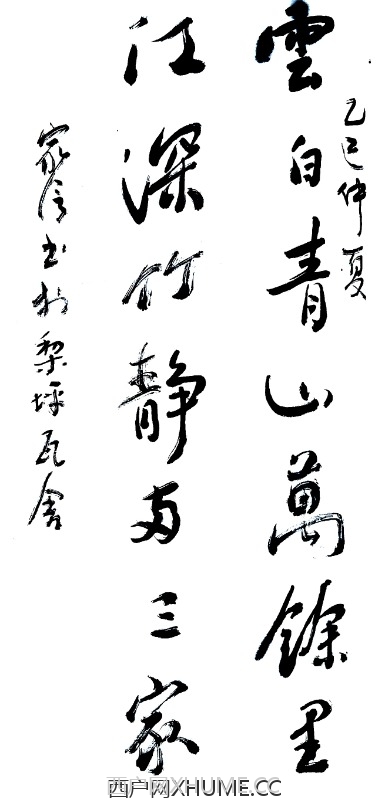 乙巳仲夏
雲白青山萬餘里
江深竹静两三家
家信书於梨坪瓦舍
西户网XHUME.CC